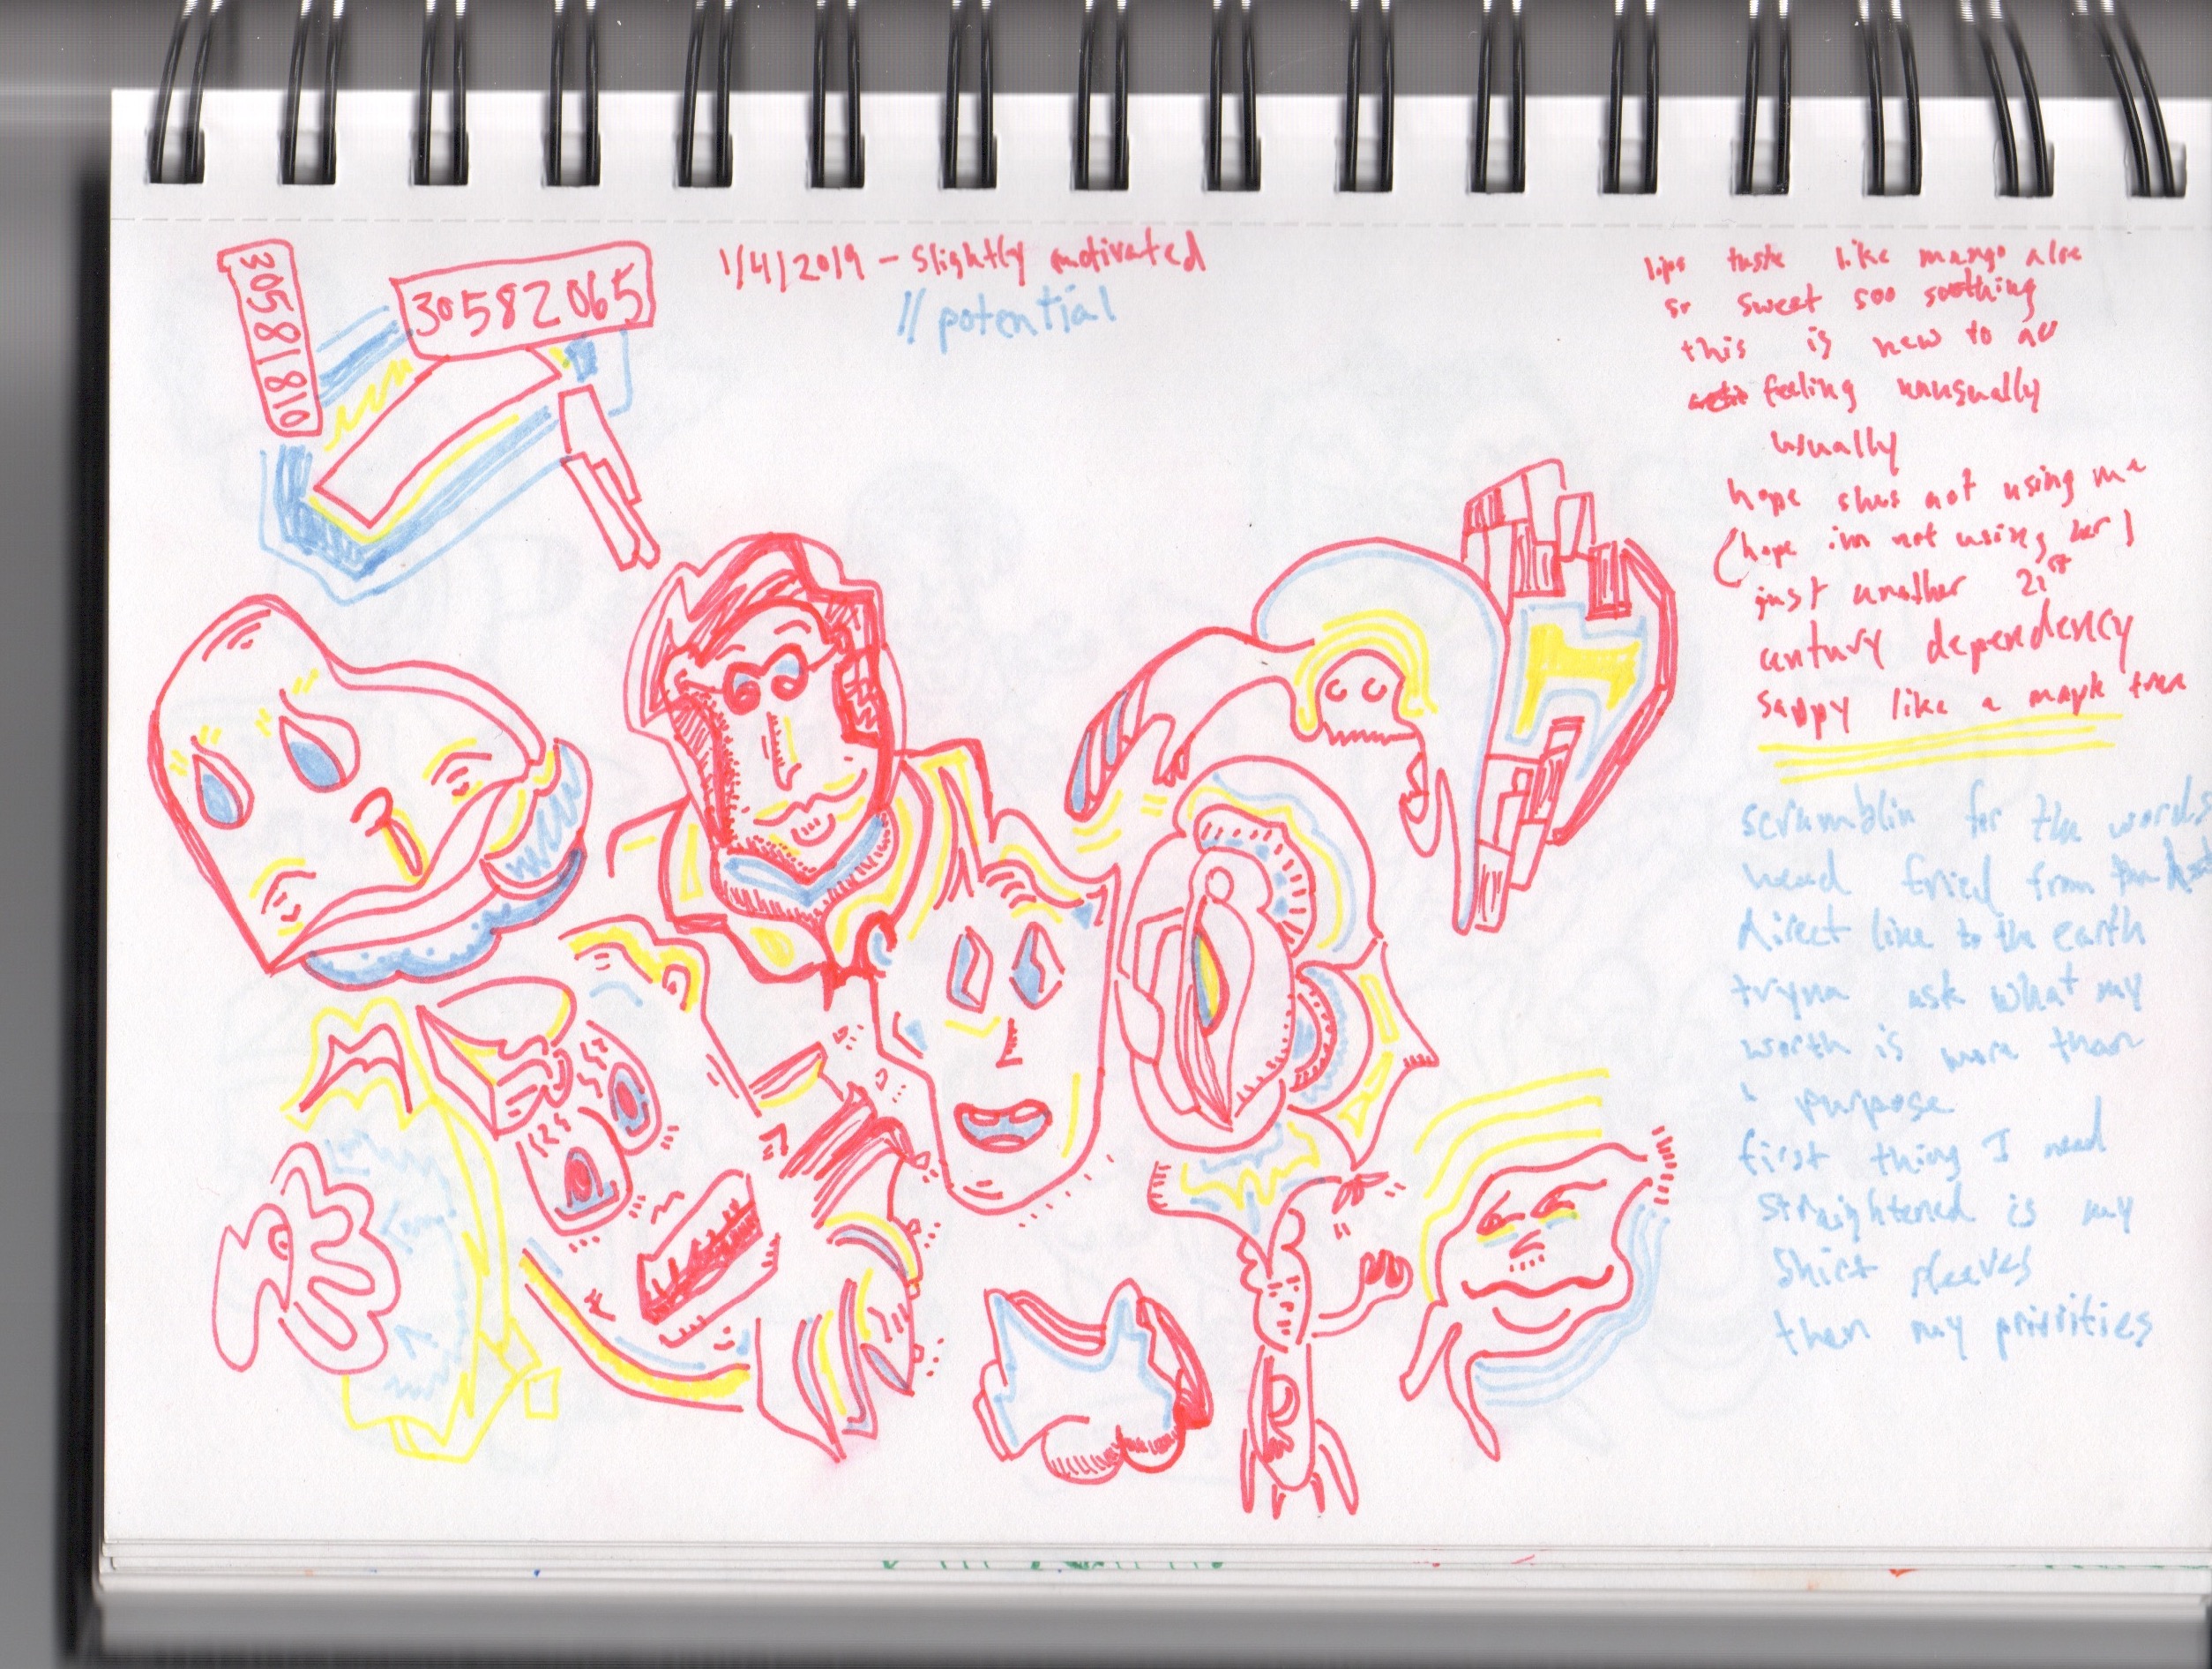 30581810
30582065
1/4/2019 - slightly motivated
// potential
lips taste like mango aloe
so sweet soo soothing
this is new to me
feeling unusually
usually
hope shes not using me
(hope im not using her)
just another 21st
century dependency
sappy like a maple tree
scramblin for the words
head fried from the
direct line to the earth
tryna ask what my
worth is more than
purpose
first thing I need
straightened is my
shirt sleeves
then my priorities